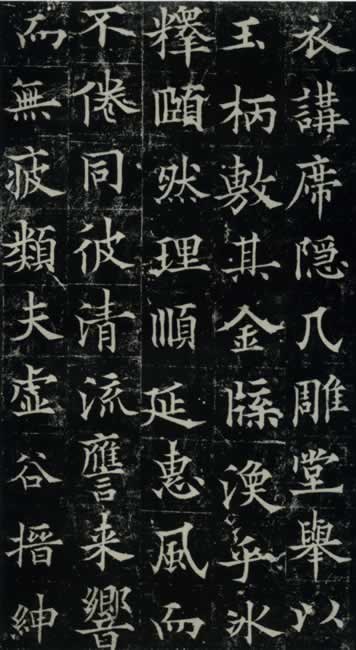 衣講席隐几雕堂舉以
玉柄敷其金牒渙乎冰
釋頤然理順延惠風而
不倦同彼清流應来響
而無疲類夫虚谷搢紳